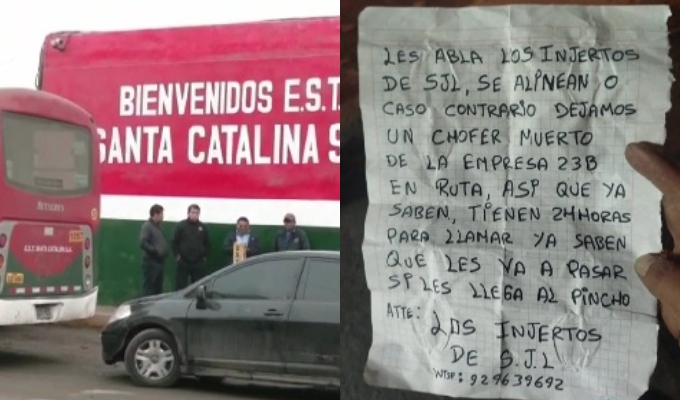 BIENVENIDOS E.S.T.
SANTA CATALINA S
LES ABLA LOS INJERTOS
DE SJL, SE ALINEAN O
CASO CONTRARIO DEJAMOS
UN CHOFER MUERTO
DE LA EMPRESA 23B
EN RUTA, ASI QUE YA
SABEN, TIENEN 24HORAS
PARA LLAMAR YA SABEN
QUE LES VA A PASAR
SI LES LLEGA AL PINCHO
ATTE: LOS INJERTOS
DE S.J.L
WTSP: 929639692